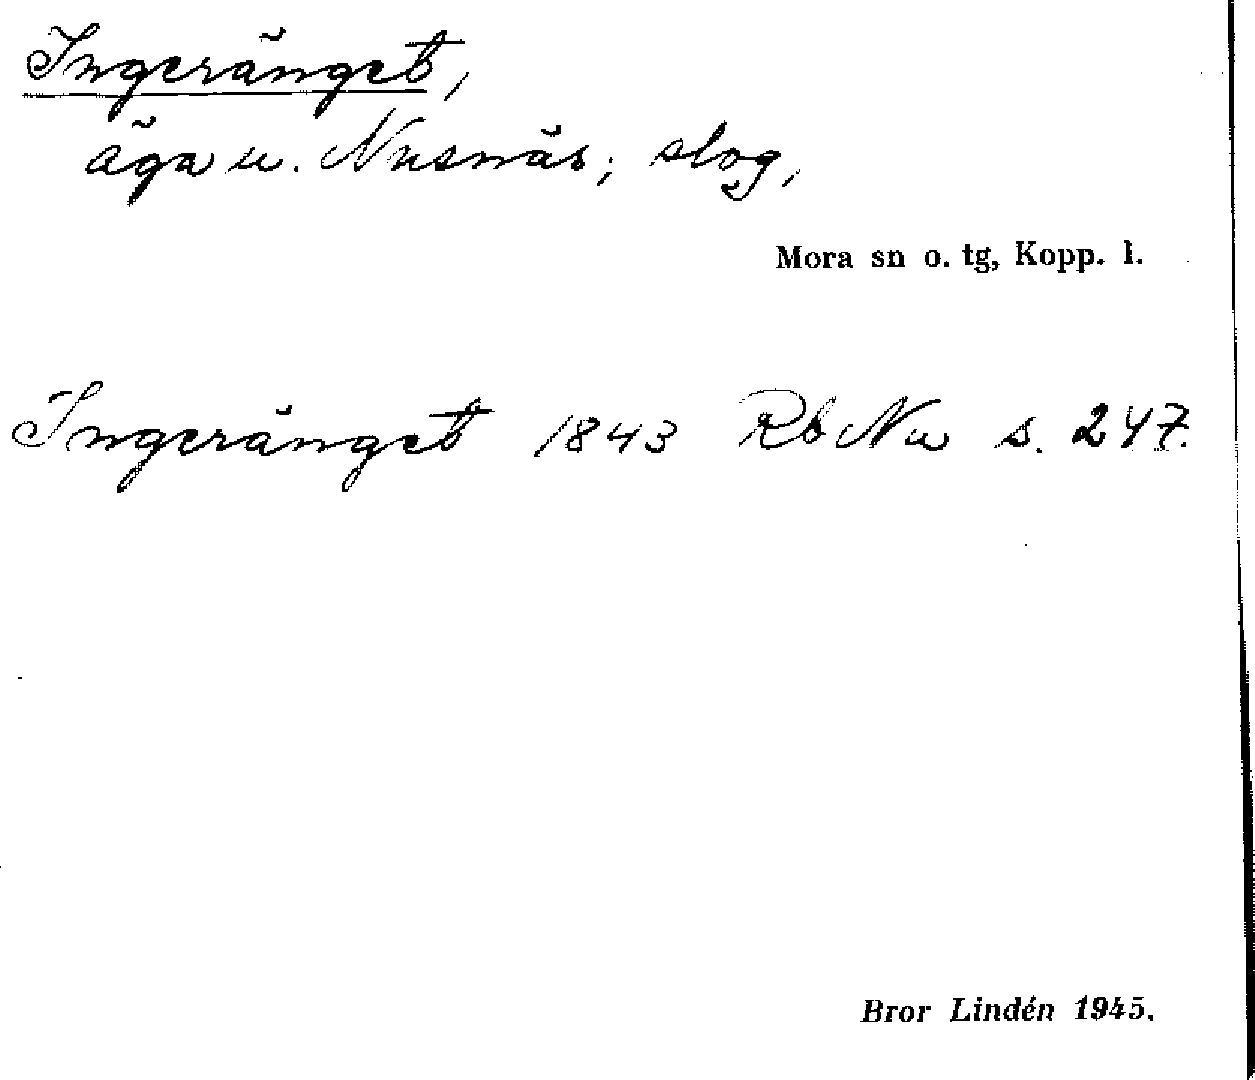 Ingeränget,
äga u. Nusnäs; slog,
Mora sn o. tg, Kopp. l.
Ingeränget 1843 Rb Nu s. 247.
Bror Lindén 1945.